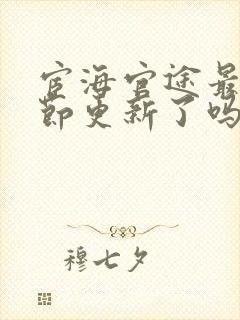 宦海官途最
节更新了吗
穆七夕